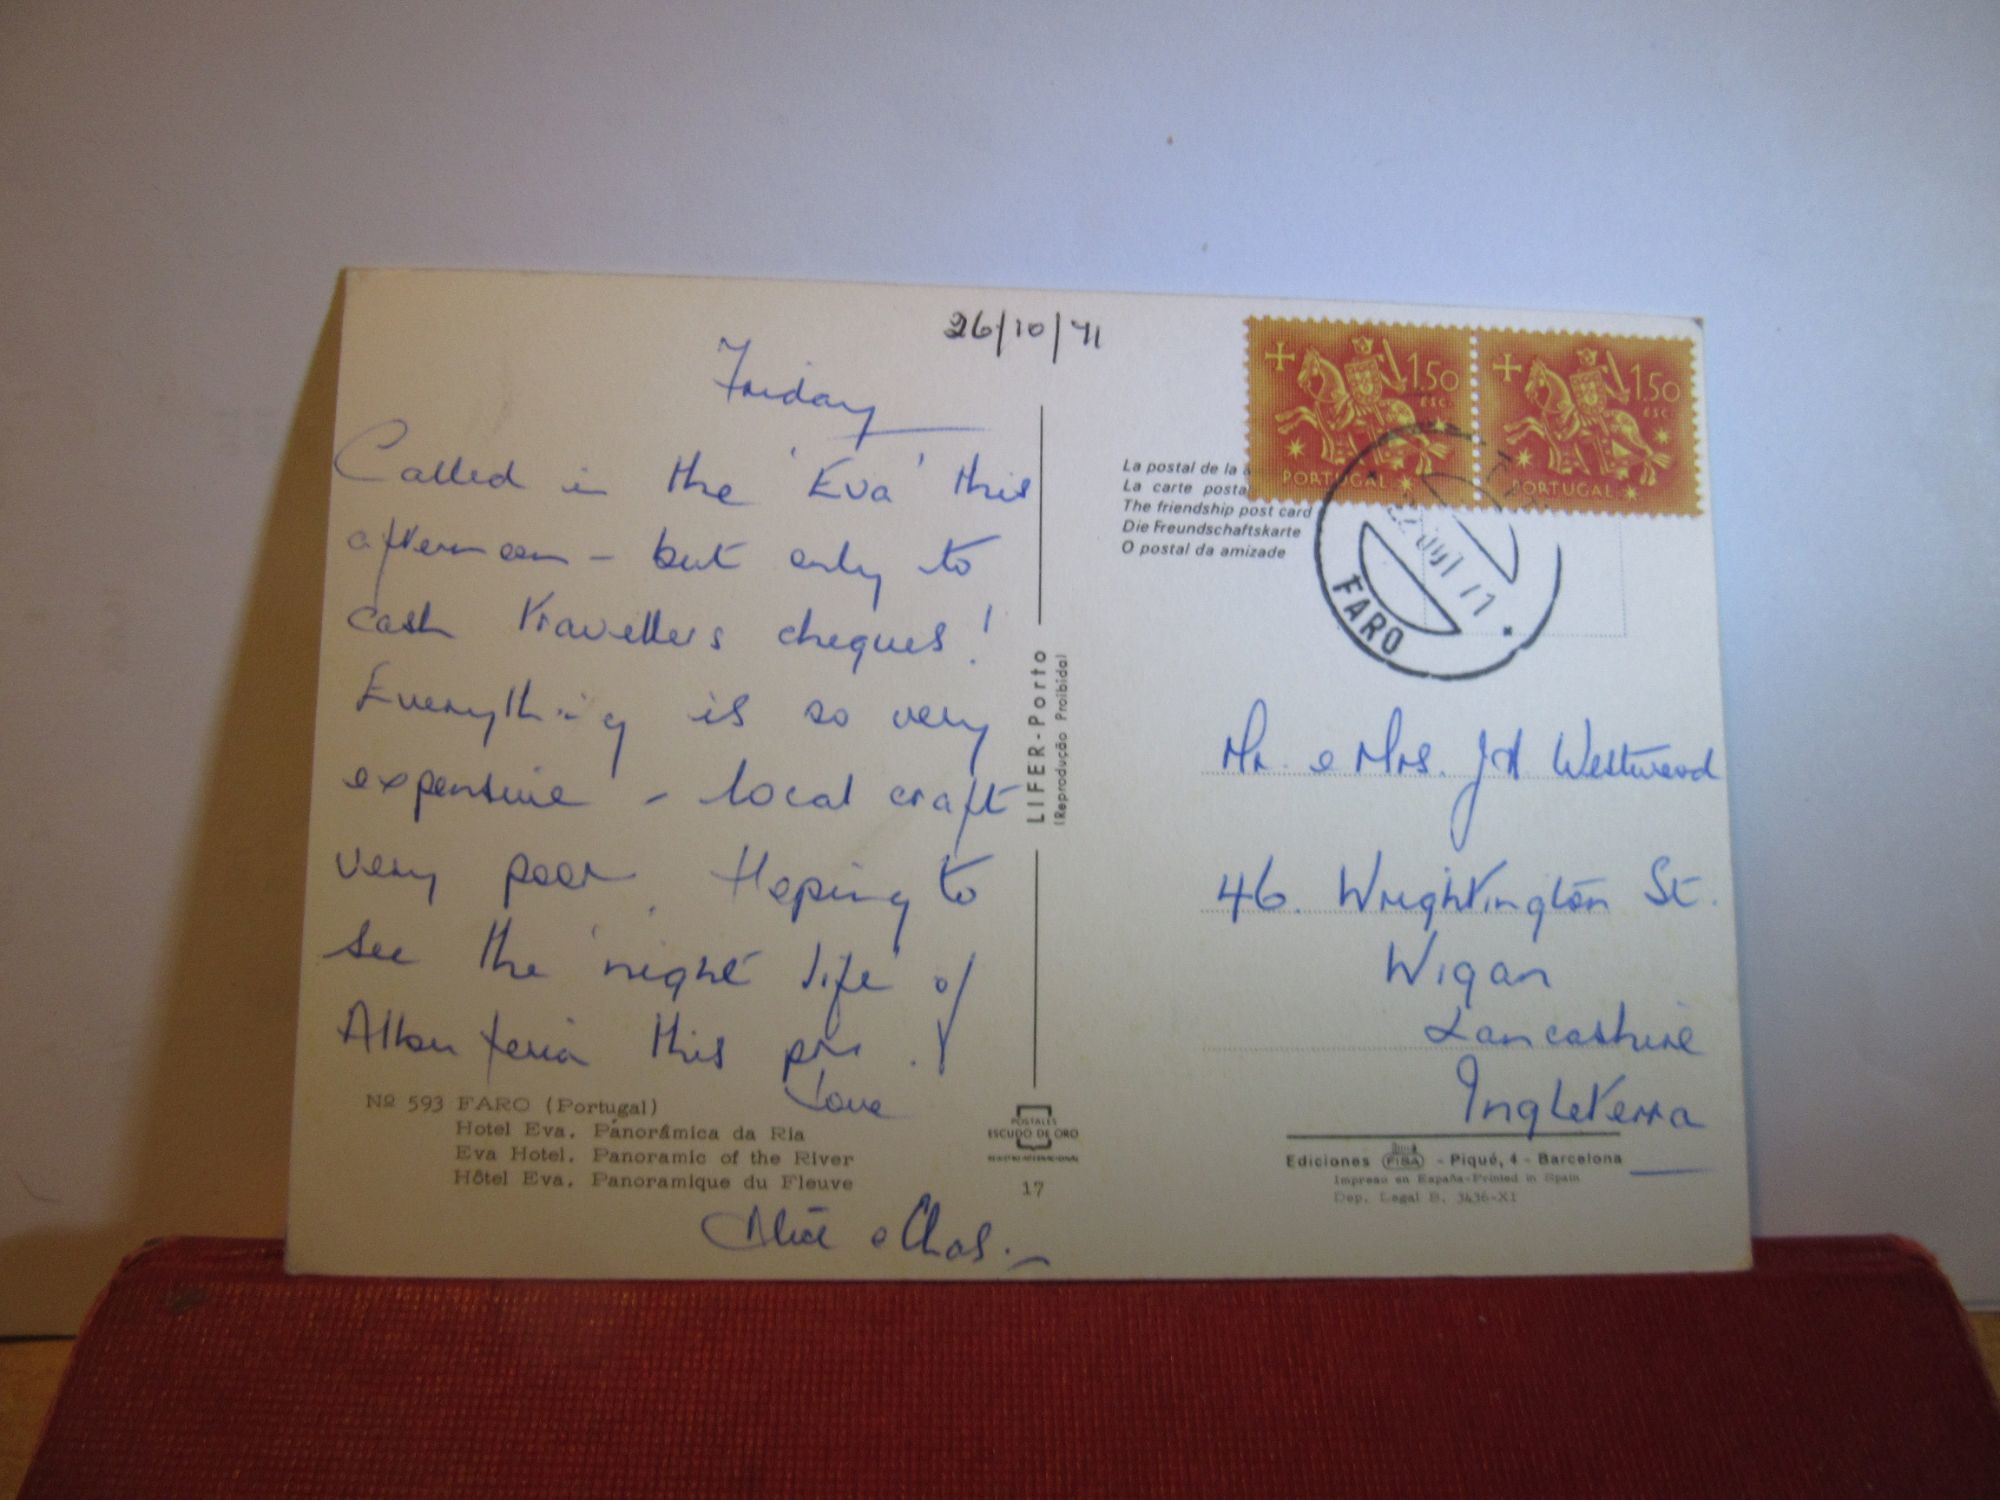 26/10/71
Friday
Called in the 'Eva' this
afternoon - but only to
cash travellers cheques!
Everything is so very
expensive - local craft
very poor. Hoping to
see the 'night life' of
Albuferia this pm.
Love
Alice & Chas.
Nº 593 FARO (Portugal)
Hotel Eva. Panorâmica da Ria
Eva Hotel. Panoramic of the River
Hôtel Eva. Panoramique du Fleuve
POSTALES
ESCUDO DE ORO
17
LIFER - Porto
(Reprodução Proibida)
1.50
ESC.
PORTUGAL
1.50
ESC.
PORTUGAL
La postal de la
La carte posta
The friendship post card
Die Freundschaftskarte
O postal da amizade
FARO
Mr. & Mrs. J.H. Westwood
46. Wrightington St.
Wigan
Lancashire
Ingleterra
Ediciones FISA - Piqué, 4 - Barcelona
Impreso en España-Printed in Spain
Dep. Legal B. 3436-XI